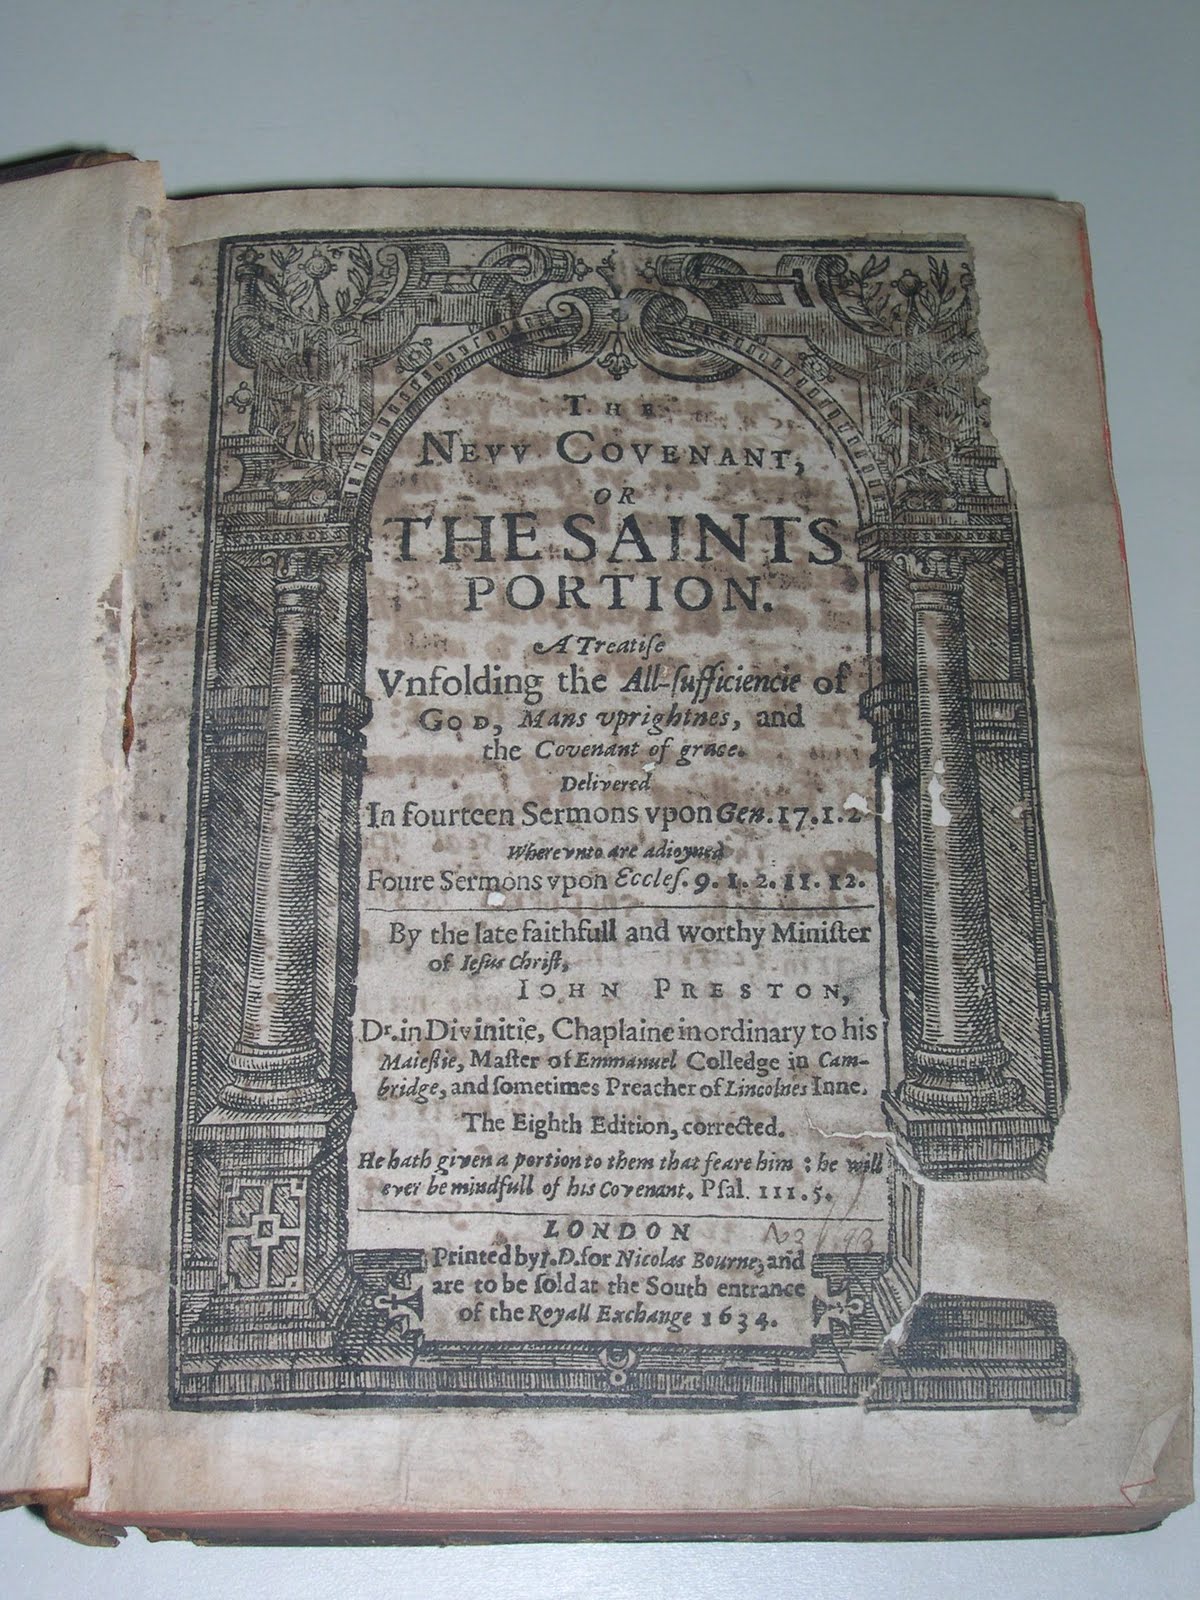 THE
NEVV COVENANT,
OR
THE SAINTS
PORTION.
A Treatiſe
Vnfolding the All-ſufficiencie of
GOD, Mans vprightnes, and
the Covenant of grace.
Delivered
In fourteen Sermons vpon Gen. 17. 1. 2
Wherevnto are adioyned
Foure Sermons vpon Eccleſ. 9. 1. 2. 11. 12.
By the late faithfull and worthy Miniſter
of Ieſus Chriſt,
IOHN PRESTON,
Dr. in Divinitie, Chaplaine in ordinary to his
Maieſtie, Maſter of Emmanuel Colledge in Cam-
bridge, and ſometimes Preacher of Lincolnes Inne.
The Eighth Edition, corrected.
He hath given a portion to them that feare him : he will
ever be mindfull of his Covenant. Pſal. 111. 5.
LONDON
Printed by I. D. for Nicolas Bourne, and
are to be ſold at the South entrance
of the Royall Exchange 1634.